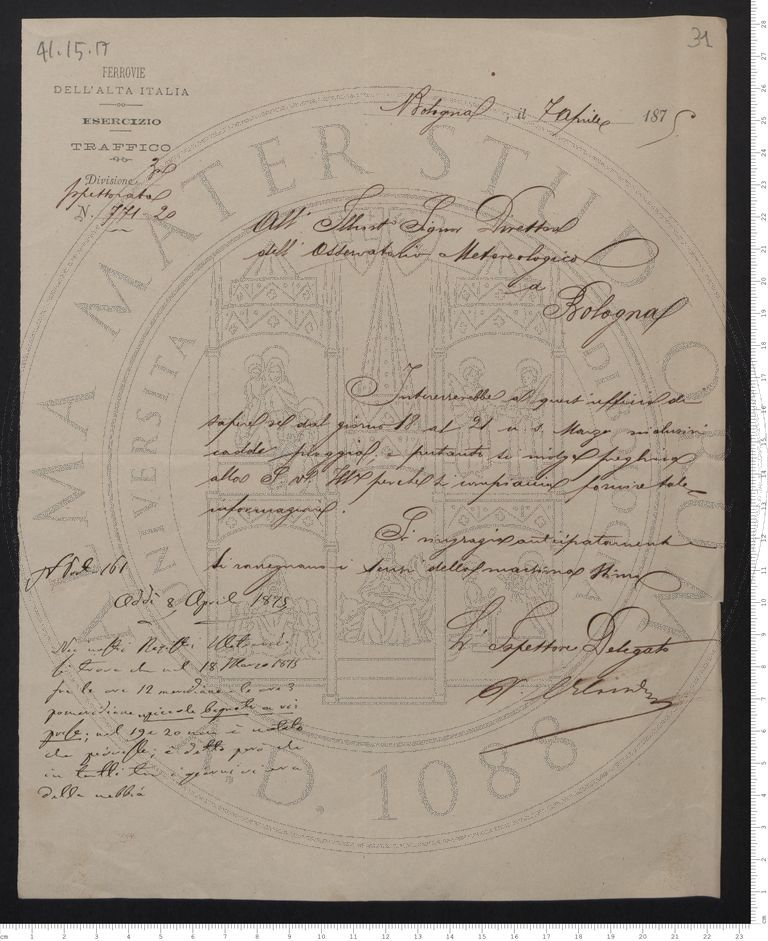 41.15.17
31
FERROVIE
DELL'ALTA ITALIA
ESERCIZIO
TRAFFICO
Divisione 3a
Ispettorato
N. 771-20
Bologna, il 7 Aprile 1875
All' Illust Signor Direttore
dell' Osservatorio Metereologico
a
Bologna
Interesserebbe a quest'ufficio di
sapere se dal giorno 18 al 21 u. s. Marzo inclusivi
cadde pioggia, e pertanto si rivolge preghiera
alla S. V. Ill perchè si compiaccia fornire tale
informazione.
Si ringrazia anticipatamente e
si rassegnano i sensi della massima stima
L' Ispettore Delegato
N Prot. 161
Addì 8 April 1875
Nei nostri Registri Meteorici
si trova che nel 18 Marzo 1875
fra le ore 12 meridiane e le ore 3
pomeridiane
nel 19 e 20 non è notato
che piovesse; è detto però che
in tutti tre i giorni vi era
della nebbia
ALMA MATER STUDIORUM
UNIVERSITÀ DI BOLOGNA
A.D. 1088